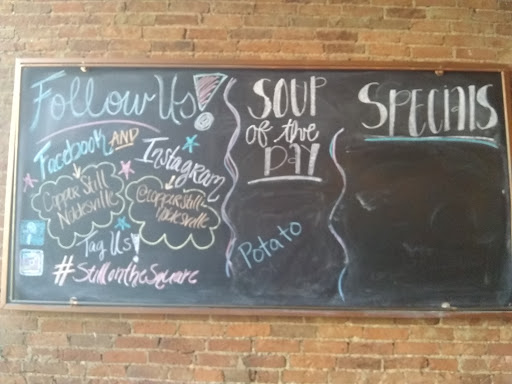 Follow Us!
Facebook AND
Instagram
Copper Still
Noblesville
@copperstill-
noblesville
Tag Us!
#StillontheSquare
SOUP
of the
DAY
Potato
SPECIALS